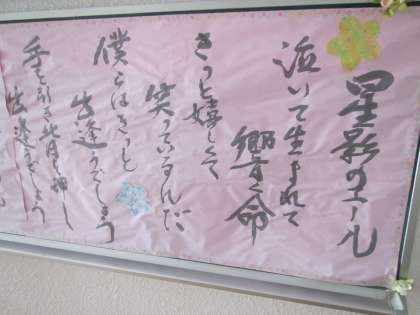 星影のエール
泣いて生まれて
響く命
きっと嬉しくて
笑っているんだ
僕らはきっと
出逢うでしょう
手を引き背中押し
出逢うでしょう